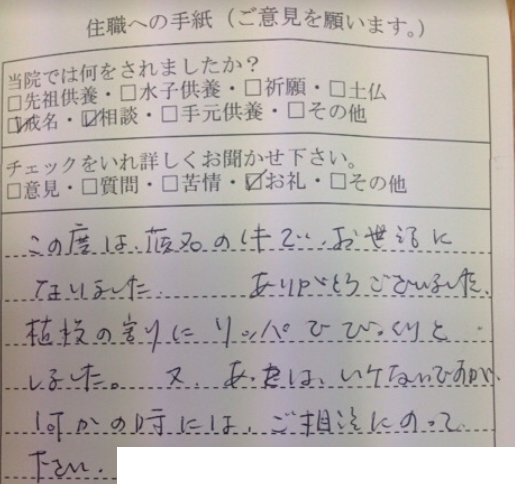 住職への手紙（ご意見を願います。）
当院では何をされましたか？
□先祖供養・□水子供養・□祈願・□土仏
☑戒名・☑相談・□手元供養・□その他
チェックをいれ詳しくお聞かせ下さい。
□意見・□質問・□苦情・☑お礼・□その他
この度は、戒名の件で、お世話に
なりました。 ありがとうございました。
の割りにリッパでびっくりと
しました。又、は、いけないですが、
何かの時には、ご相談にのって
下さい。